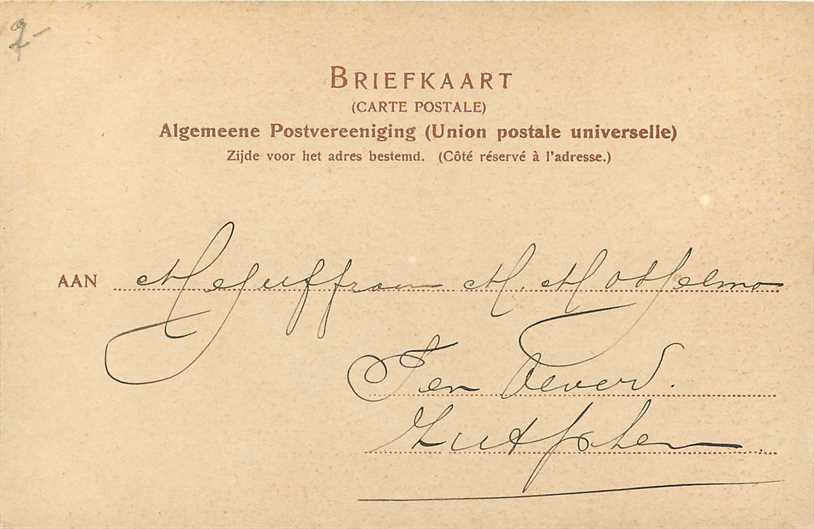 2-
BRIEFKAART
(CARTE POSTALE)
Algemeene Postvereeniging (Union postale universelle)
Zijde voor het adres bestemd. (Côté réservé à l'adresse.)
AAN Mejuffrouw M.
Ten
Zutphen.